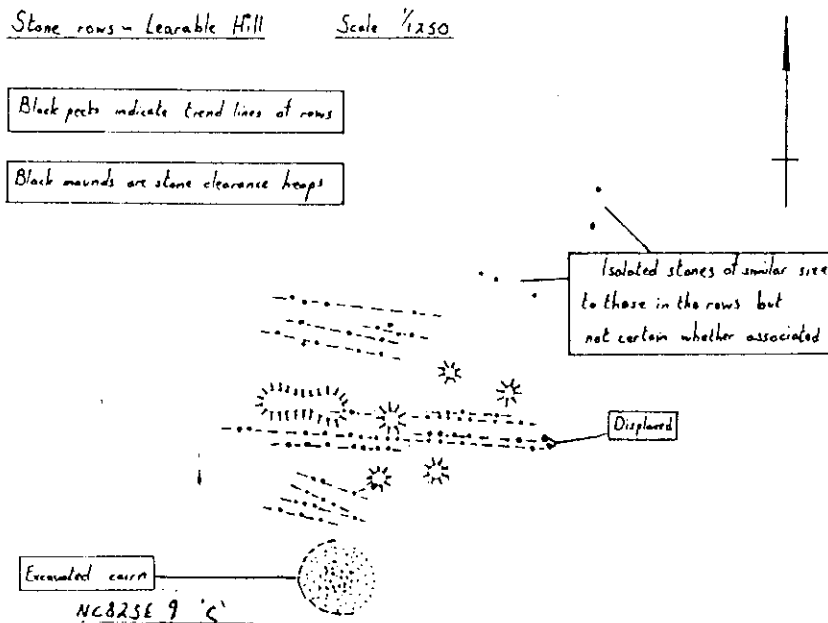 Stone rows - Learable Hill
Scale 1/1250
Black pecks indicate trend lines of rows
Black mounds are stone clearance heaps
Isolated stones of similar size
to those in the rows but
not certain whether associated
Displaced
Excavated cairn
NC82SE 9 'C'